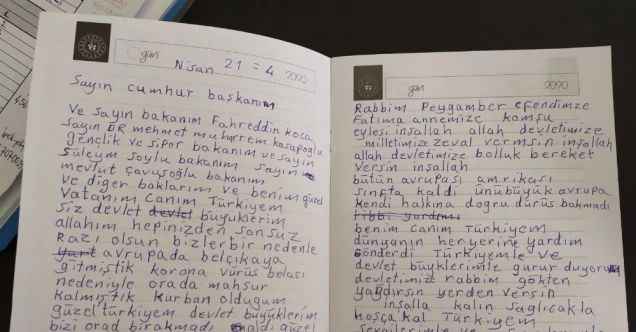 gün
Nisan 21 = 4 2020
Sayın cumhur başkanım
Ve Sayın bakanım Fahreddin koca
Sayın DR mehmet muharrem kasapoğlu
gençlik ve sipor bakanım ve sayın
Süleym Soylu bakanım Sayın
mevlut çavuşoğlu bakanım
ve diğer baklarım ve benim güzel
Vatanım Canım Türkiyem
Siz devlet devlet büyüklerim
allahım hepinizden Sonsuz
Razı olsun bizler bir nedenle
avrupada belçikaya
gitmiştik korona vürüs belası
nedeniyle orada mahsur
kalmıştık kurban olduğum
güzel türkiyem devlet büyüklerim
bizi orad bırakmadı aldı güzel
gün 2020
Rabbim Peygamber efendimze
Fatıma annemize komşu
eylesi inşallah allah devletimize
milletimize zeval vermsin inşallah
allah devletimize bolluk bereket
versin inşallah
bütün avrupası amrikası
sınıfta kaldı ünübüyük avrupa
kendi halkına doğru dürüs bakmadı
tıbbi yardımı
benim canım Türkiyem
dünyanın her yerine yardım
gönderdi Türkiyemle ve
devlet büyüklerimle gurur duyorum
devletimiz rabbim gökten
yağdırsın yerden versin
inşalla kalın sağlıcakla
hoşça kal Türkiyem